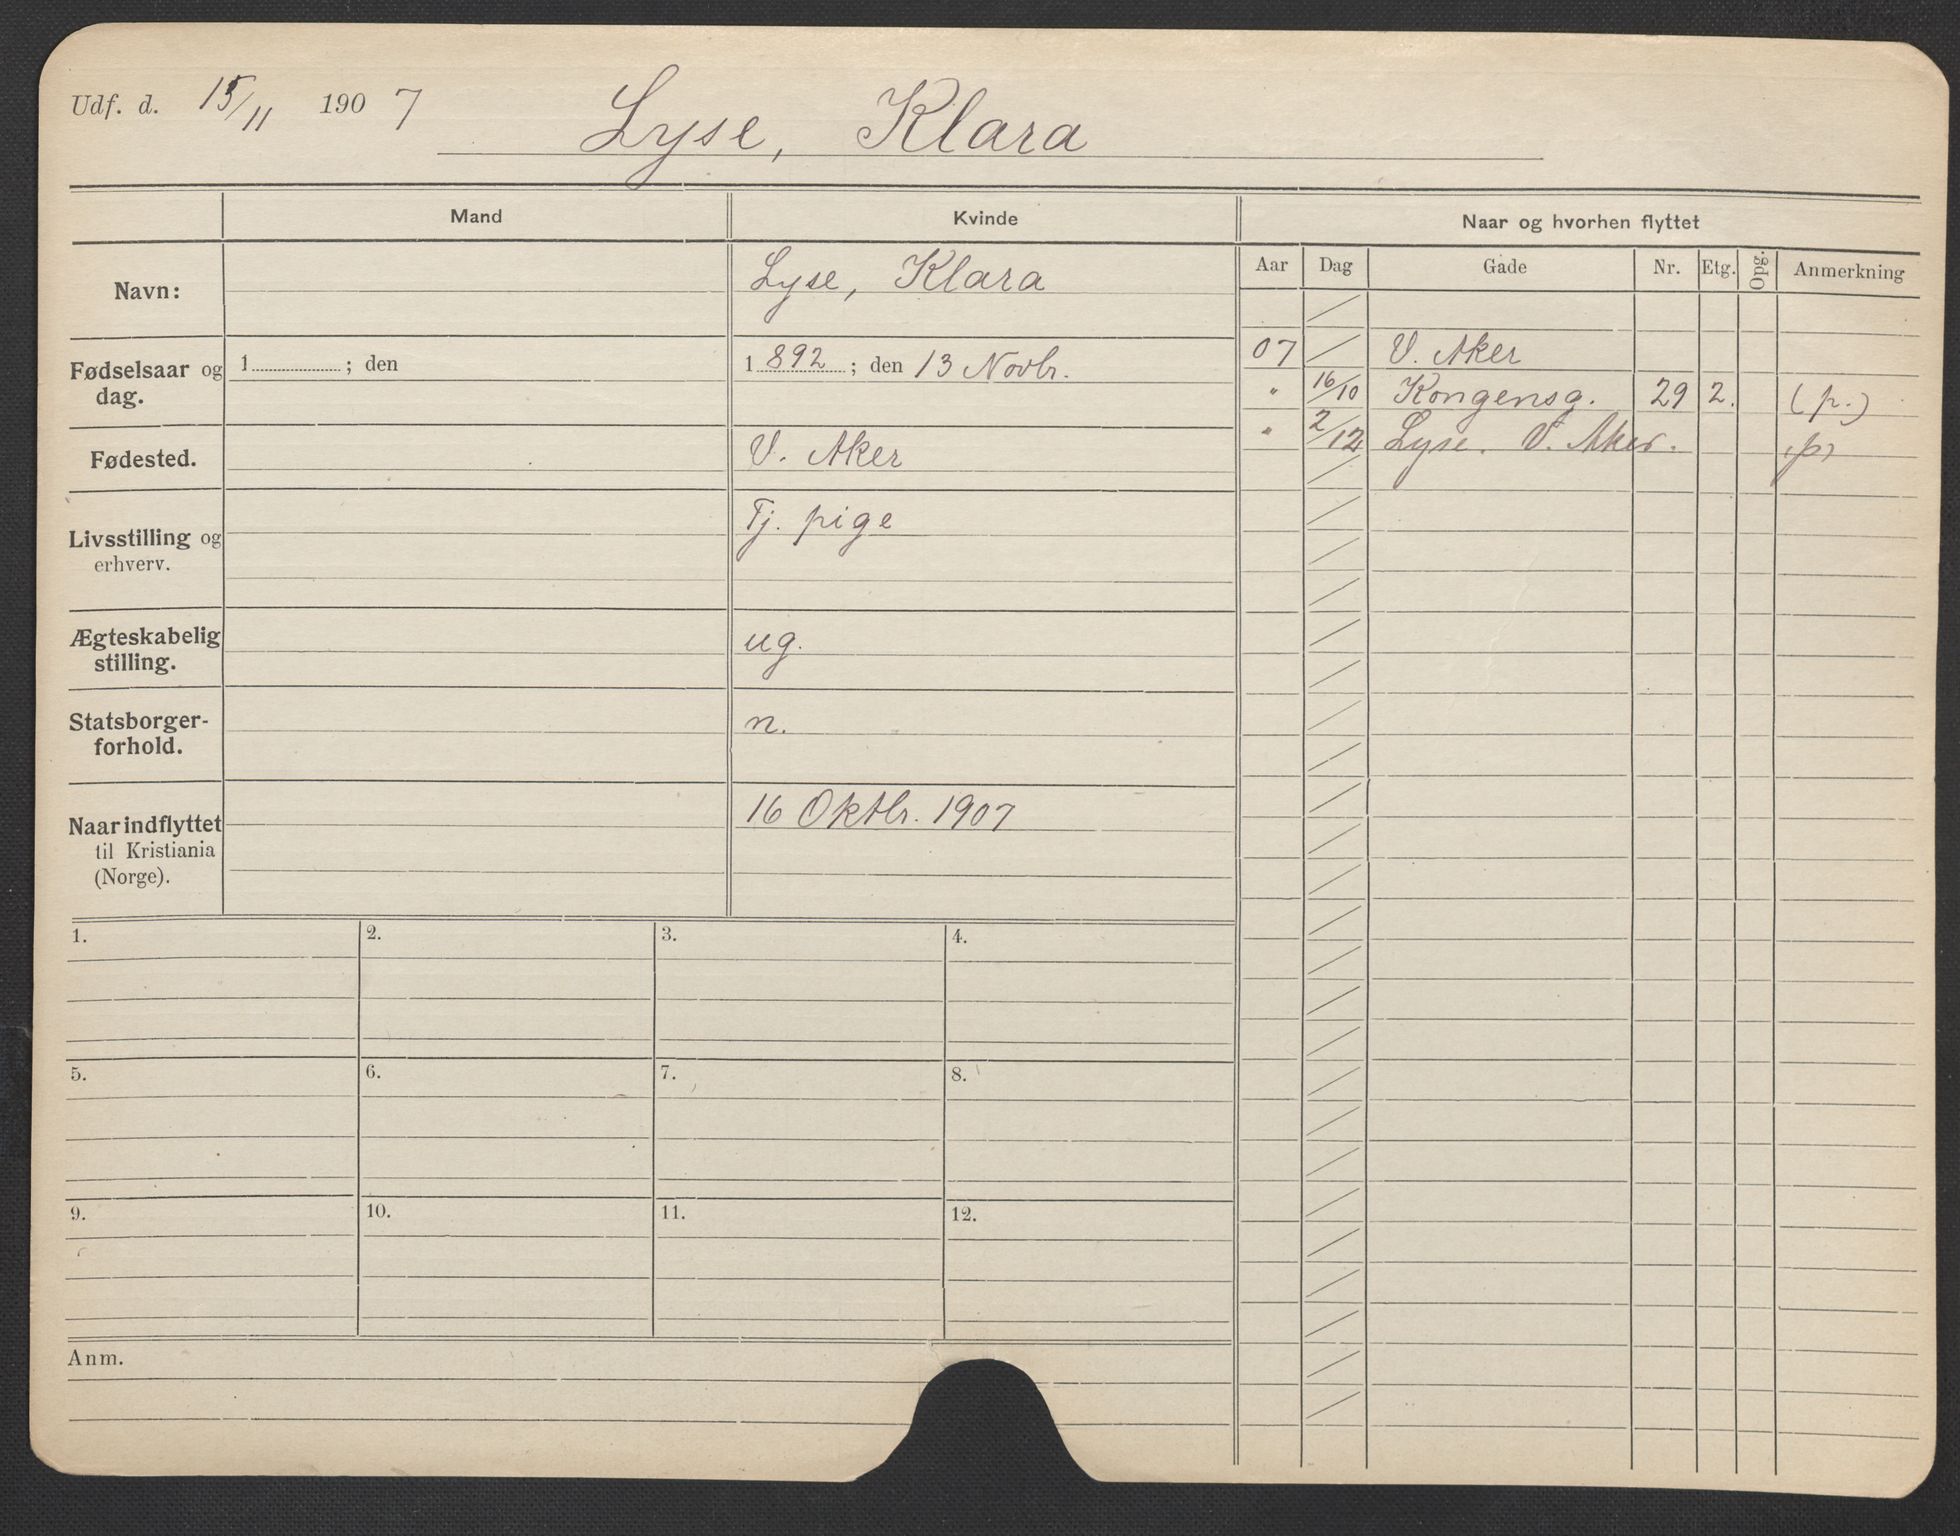 Udf. d. 15/11 1907
Lyse, Klara
Mand
Kvinde
Naar og hvorhen flyttet
Aar Dag Gade Nr. Etg. Opg. Anmerkning
Navn:
Lyse, Klara
Fødselsaar og dag.
1 ; den
1892 ; den 13 Novbr.
Fødested.
V. Aker
Livsstilling og erhverv.
Tj. pige
Ægteskabelig stilling.
ug.
Statsborgerforhold.
n.
Naar indflyttet til Kristiania (Norge).
16 Oktbr. 1907
07 V. Aker
" 16/10 Kongensg. 29 2. (p.)
" 2/12 Lyse. V. Aker. (p)
1. 2. 3. 4.
5. 6. 7. 8.
9. 10. 11. 12.
Anm.